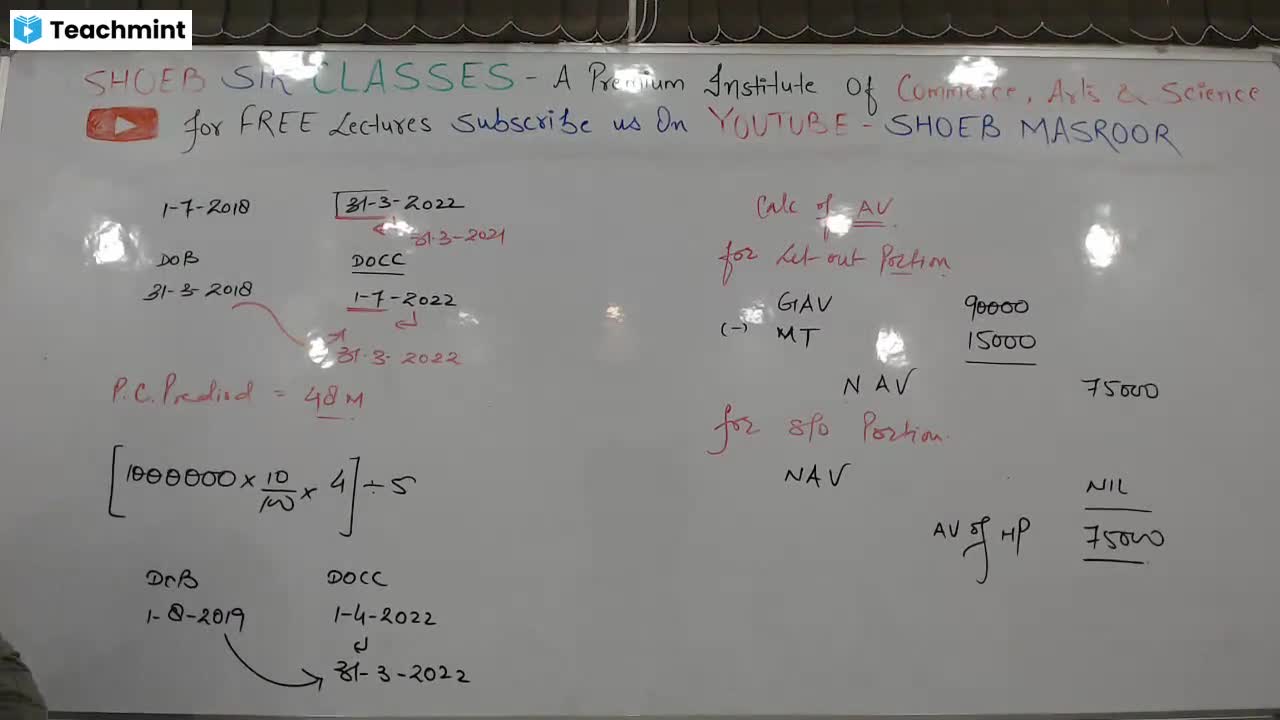 Teachmint
SHOEB SIR CLASSES - A Premium Institute Of Commerce, Arts & Science
for FREE Lectures Subscribe us On YOUTUBE - SHOEB MASROOR
1-7-2018 31-3-2022
31-3-2021
DOB DOCC
31-3-2018 1-7-2022
31-3-2022
P.C. Prediod = 48 M
[1000000 × 10/100 × 4] ÷ 5
DOB DOCC
1-8-2019 1-4-2022
31-3-2022
Calc of AV
for Let out Portion
GAV 90000
(-) MT 15000
NAV 75000
for S/o Portion
NAV NIL
AV of HP 75000